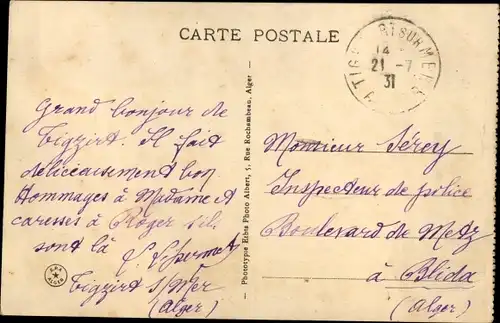 CARTE POSTALE
TIGZIRT SUR MER
14
21 - 7
31
Grand bonjour de
Tigzirt. Il fait
délicieusement bon
Hommages à Madame et
caresses à Roger s'ils
sont là
Tigzirt s/Mer
(Alger)
Phototypie Etbts Photo Albert, 5, Rue Rochambeau, Alger
Monsieur Sérey
Inspecteur de police
Boulevard de Metz
à Blida
(Alger)